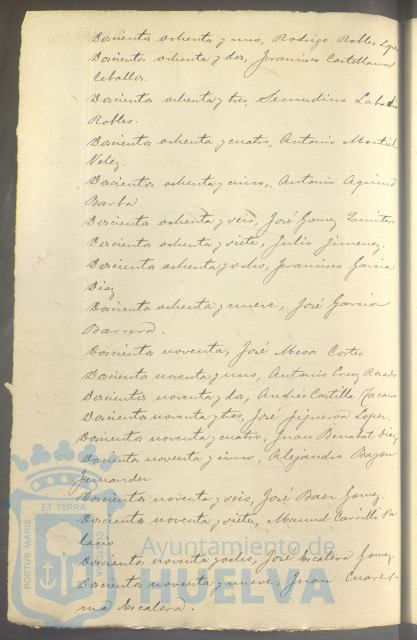 Doscientos ochenta y uno, Rodrigo Robles Lopez
Doscientos ochenta y dos, Francisco Castellanos
Ceballos.
Doscientos ochenta y tres, Secundino Labadia
Robles.
Doscientos ochenta y cuatro, Antonio Montiel
Velez.
Doscientos ochenta y cinco, Antonio
Barba
Doscientos ochenta y seis, José Gomez
Doscientos ochenta y siete, Julio Jimenez.
Doscientos ochenta y ocho, Francisco Garcia
Diaz
Doscientos ochenta y nueve, José Garcia
Barrera.
Doscientos noventa, José Mesa Cortes
Doscientos noventa y uno, Antonio Cruz Rosado
Doscientos noventa y dos, Andrés Castilla Toscano
Doscientos noventa y tres, José Figueroa Lopez.
Doscientos noventa y cuatro, Juan Benabat Diaz
Doscientos noventa y cinco, Alejandro Bazan
Fernandez
Doscientos noventa y seis, José Baez Gomez
Doscientos noventa y siete, Manuel Carrillo Pa
lacio
Doscientos noventa y ocho, José Escalera Gomez
Doscientos noventa y nueve, Juan Cuares-
ma Escalera.
PORTUS MARIS ET TERRÆ
Ayuntamiento de
HUELVA